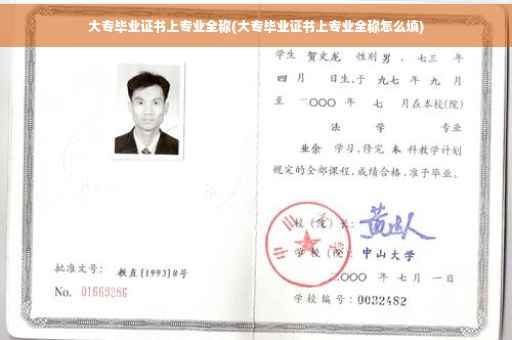 大专毕业证书上专业全称(大专毕业证书上专业全称怎么填)
学生 贺文龙 性别 男 、七三 年
四 月 日生、于 九七 年 九 月
至 二〇〇〇 年 七 月在本校(院)
法 学 专业
业余 学习，修完 本 科教学计划
规定的全部课程，成绩合格，准予毕业。
校 (院) 长：
学 校 (院): 中山大学
批准文号： 教直[1993]8号
二〇〇〇 年 七 月 一 日
No. 01663286
学校编号：0032482